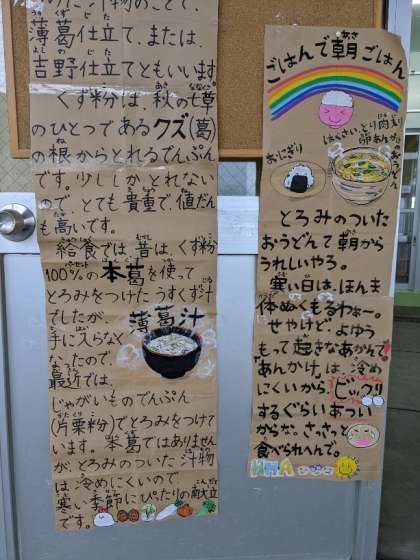 汁物のことで、
薄葛仕立て、または、
吉野仕立てともいいます。
くず粉は、秋の七草
のひとつであるクズ(葛)
の根からとれるでんぷん
です。少ししかとれない
ので、とても貴重で、値だん
も高いです。
給食では、昔は、くず粉
100%の本葛を使って
とろみをつけたうすくず汁
でしたが、
手に入らなく
なったので、
最近では、
じゃがいものでんぷん
(片栗粉)でとろみをつけて
います。本葛ではありません
が、とろみのついた汁物
は、冷めにくいので、
寒い季節にぴったりの献立
です。
薄葛汁
ごはんで朝ごはん
おにぎり
はくさい、とり肉入り
卵あんかけ
おうどん
とろみのついた
おうどんで朝から
うれしいやろ。
寒い日は、ほんま
体ぬくもるわぁー。
せやけど、よゆう
もって起きなあかんで!
“あんかけ”は、冷め
にくいから、ビックリ
するぐらいあつい
からな。さっさっと
食べられへんで。